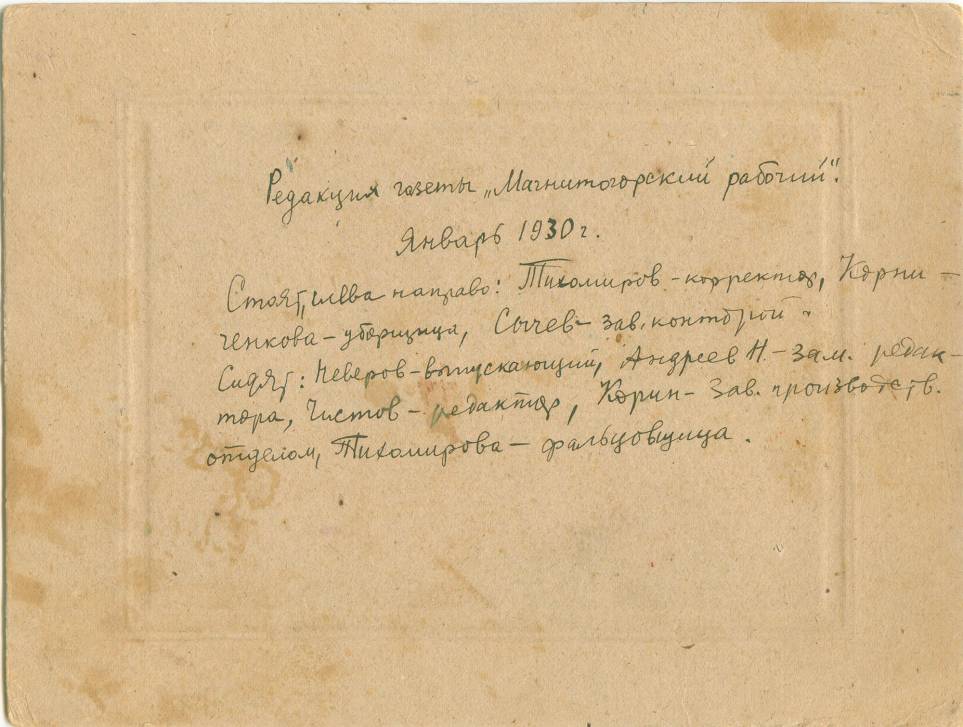 Редакция газеты „Магнитогорский рабочий".
Январь 1930 г.
Стоят, слева направо: Тихомиров - корректор, Корни-
ченкова - уборщица, Сычев - зав. конторой.
Сидят: Неверов - выпускающий, Андреев Н. - зам. редак-
тора, Чистов - редактор, Корин - зав. производств.
отделом, Тихомирова - фальцовщица.